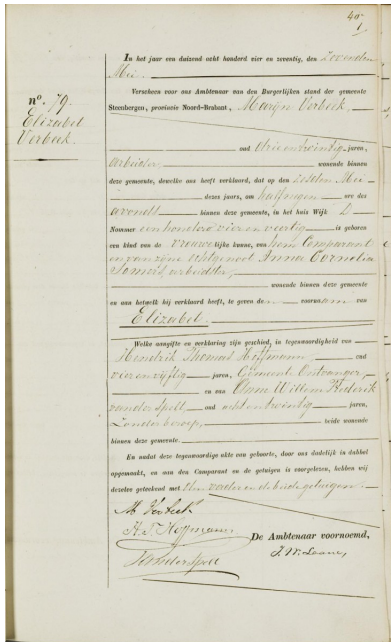 40
1
In het jaar een duizend acht honderd vier en zeventig, den Zevenden
Mei
Verscheen voor ons Ambtenaar van den Burgerlijken stand der gemeente
Steenbergen, provincie Noord-Brabant, Marijn Verbeek,
no. 79.
Elizabet
Verbeek.
oud drie en twintig jaren,
arbeider, wonende binnen
deze gemeente, dewelke ons heeft verklaard, dat op den zesden Mei
dezes jaars, om half negen ure des
avonds binnen deze gemeente, in het huis Wijk D
Nummer een honderd vier en veertig is geboren
een kind van de vrouwelijke kunne, van hem Comparant
en van zijne echtgenoot Anna Cornelia
Somers, arbeidster,
wonende binnen deze gemeente
en aan hetwelk hij verklaard heeft, te geven den voornaam van
Elizabet.
Welke aangifte en verklaring zijn geschied, in tegenwoordigheid van
Hendrik Thomas Hoffmann, oud
vier en vijftig jaren, Gemeente Ontvanger,
en van Willem Frederik
van der Spelt, oud acht en twintig jaren,
Zonder beroep, beide wonende
binnen deze gemeente.
En is dat tegenwoordige akte van geboorte, door ons dadelijk in dubbel
opgemaakt, en aan den Comparant en de getuigen is voorgelezen, hebben wij
dezelve geteekend met den vader en de beide getuigen.
M Verbeek
H. T. Hoffmann
De Ambtenaar voornoemd,
van der Spelt